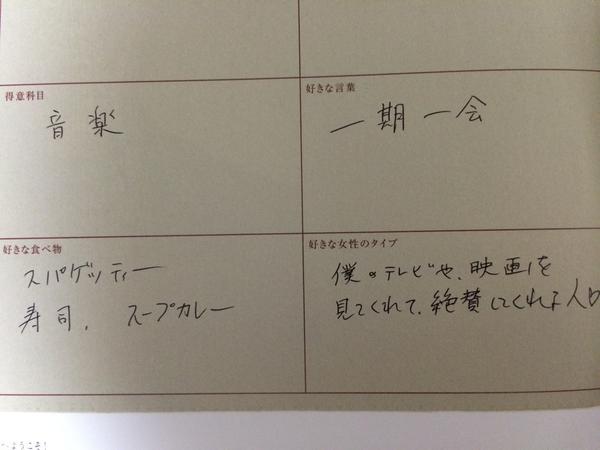 得意科目
音楽
好きな言葉
一期一会
好きな食べ物
スパゲッティー
寿司、スープカレー
好きな女性のタイプ
僕のテレビや、映画を
見てくれて、絶賛してくれる人
へようこそ！